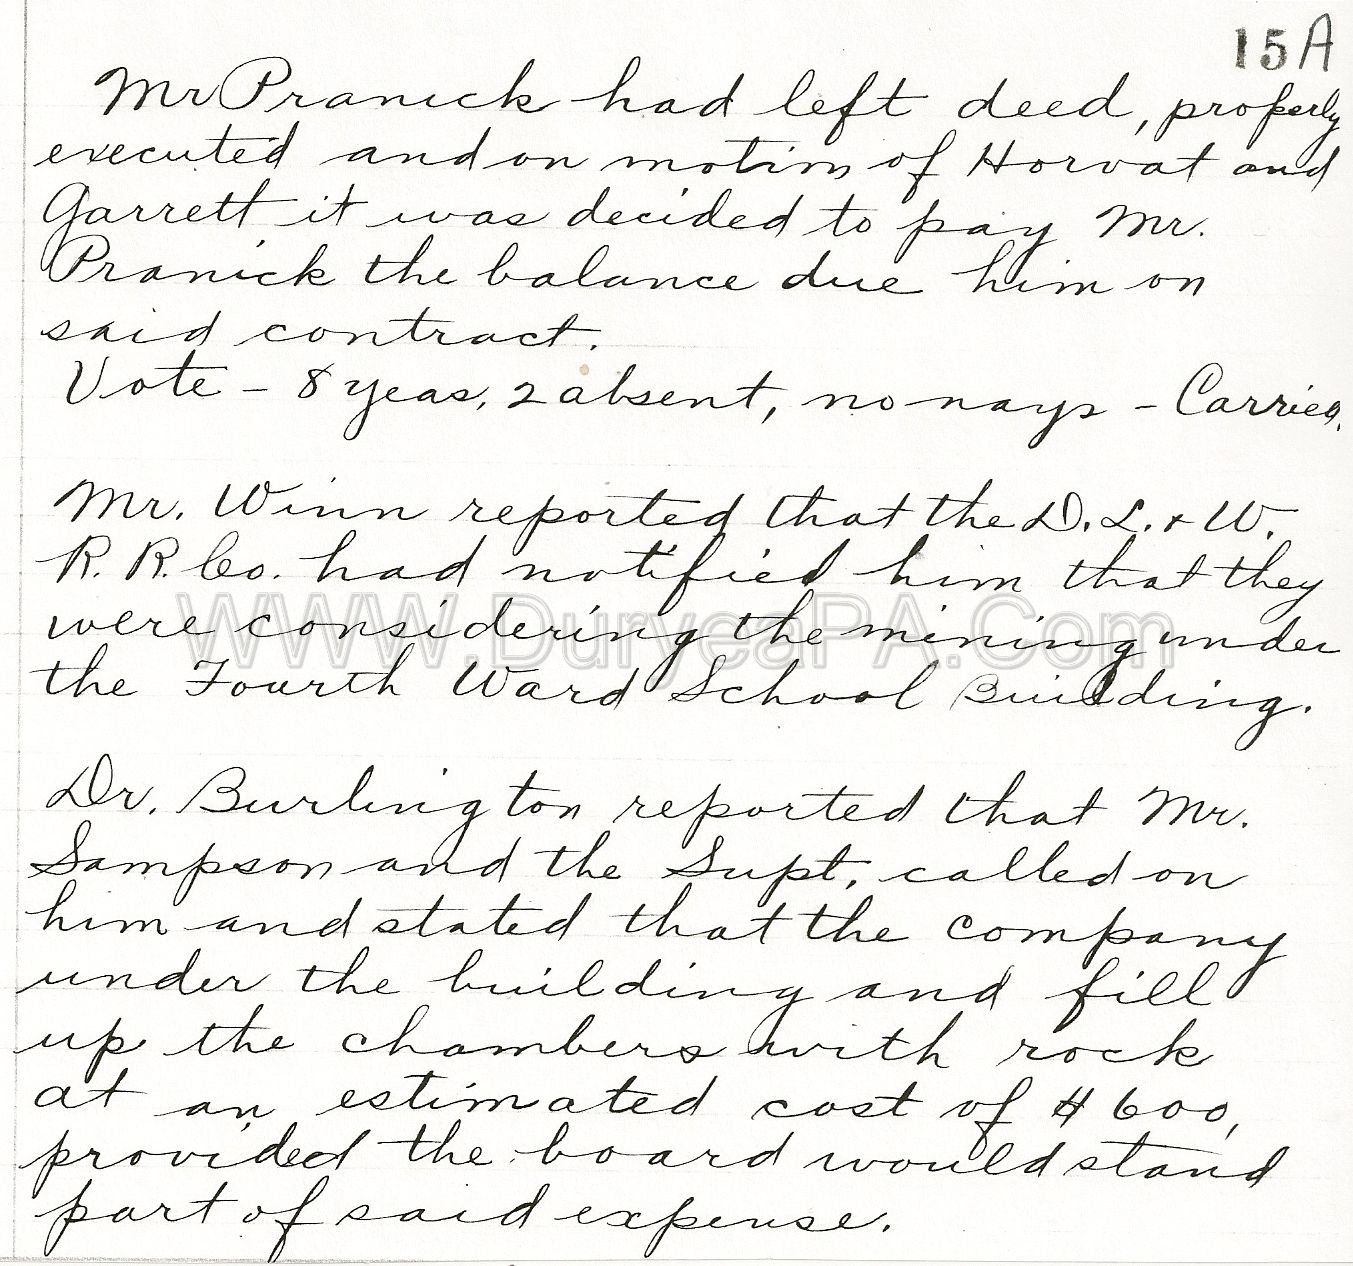 15A
Mr Pranick had left deed, properly
executed and on motion of Horvat and
Garrett it was decided to pay Mr.
Pranick the balance due him on
said contract.
Vote - 8 yeas, 2 absent, no nays - Carried.
Mr. Winn reported that the D. L. & W.
R. R. Co. had notified him that they
were considering the mining under
WWW.DuryeaPA.Com
the Fourth Ward School Building.
Dr. Burlington reported that Mr.
Sampson and the Supt. called on
him and stated that the company
under the building and fill
up the chambers with rock
at an estimated cost of $600,
provided the board would stand
part of said expense.